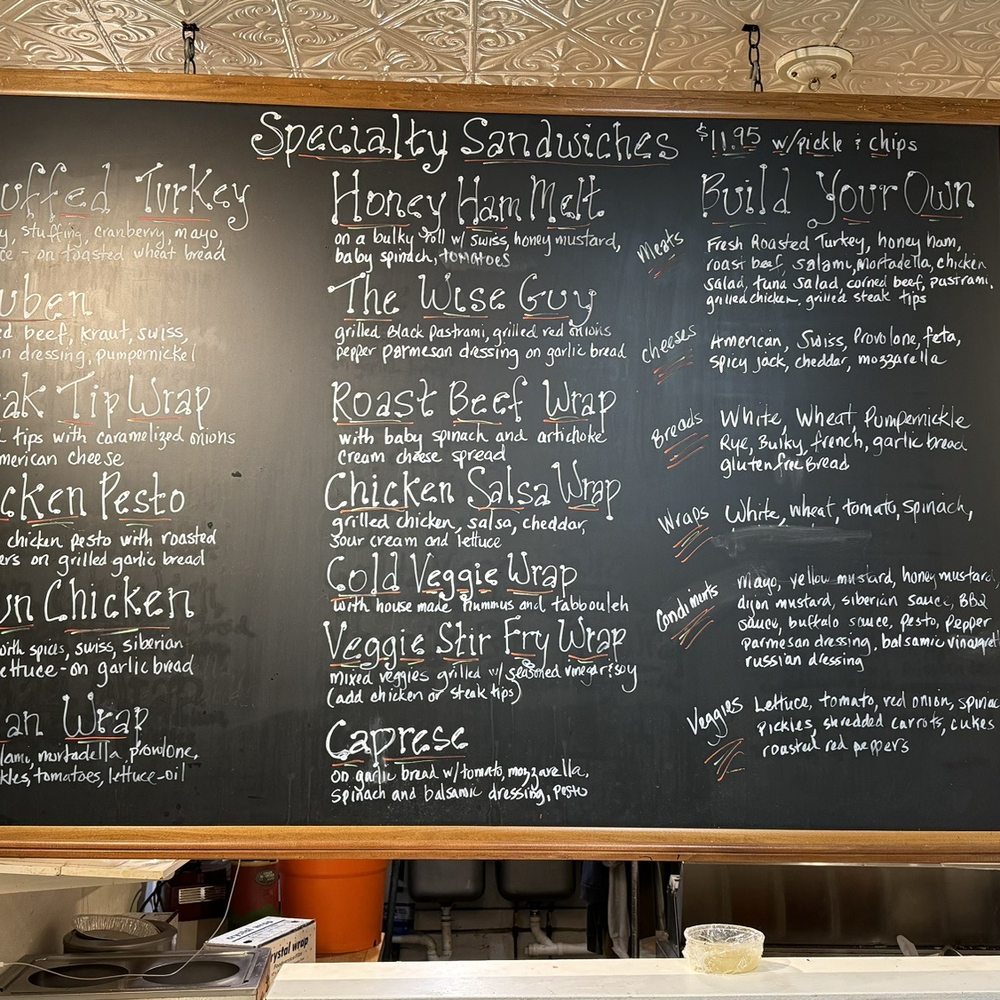 Specialty Sandwiches $11.95 w/pickle & chips
uffed Turkey
y, stuffing, cranberry, mayo,
ce - on toasted wheat bread
uben
ed beef, kraut, swiss,
n dressing, pumpernickel
ak Tip Wrap
tips with caramelized onions
merican cheese
cken Pesto
chicken pesto with roasted
ers on grilled garlic bread
un Chicken
with spices, swiss, siberian
lettuce - on garlic bread
an Wrap
lami, mortadella, provolone,
kles, tomatoes, lettuce-oil
Honey Ham Melt
on a bulky roll w/ swiss, honey mustard,
baby spinach, tomatoes
The Wise Guy
grilled Black Pastrami, grilled red onions
pepper parmesan dressing on garlic bread
Roast Beef Wrap
with baby spinach and artichoke
cream cheese spread
Chicken Salsa Wrap
grilled chicken, salsa, cheddar,
sour cream and lettuce
Cold Veggie Wrap
with house made hummus and tabbouleh
Veggie Stir Fry Wrap
mixed veggies grilled w/ seasoned vinegar & soy
(add chicken or steak tips)
Caprese
on garlic bread w/tomato, mozzarella,
spinach and balsamic dressing, pesto
Build Your Own
Meats
Fresh Roasted Turkey, honey ham,
roast beef, salami, mortadella, chicken
salad, tuna salad, corned beef, pastrami,
grilled chicken, grilled steak tips
cheeses
American, Swiss, Provolone, feta,
spicy jack, cheddar, mozzarella
Breads
White, Wheat, Pumpernickle
Rye, Bulky, french, garlic bread
gluten free Bread
Wraps
White, wheat, tomato, spinach,
Condiments
mayo, yellow mustard, honey mustard,
dijon mustard, siberian sauce, BBQ
sauce, buffalo sauce, pesto, pepper
parmesan dressing, balsamic vinaigret
russian dressing
Veggies
Lettuce, tomato, red onion, spinac
pickles, shredded carrots, cukes
roasted red peppers
crystal wrap